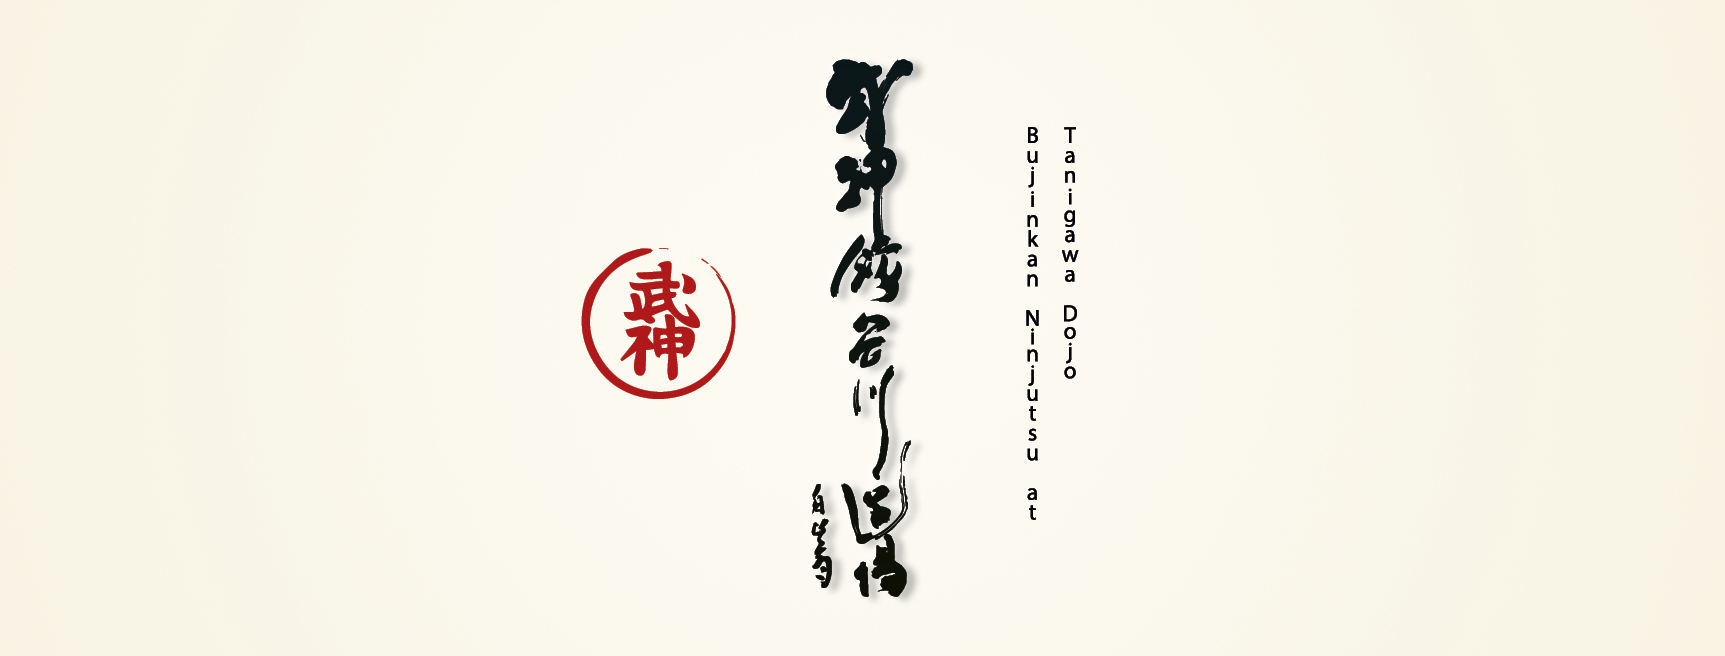 武神
武神館谷川道場
Bujinkan Ninjutsu at
Tanigawa Dojo